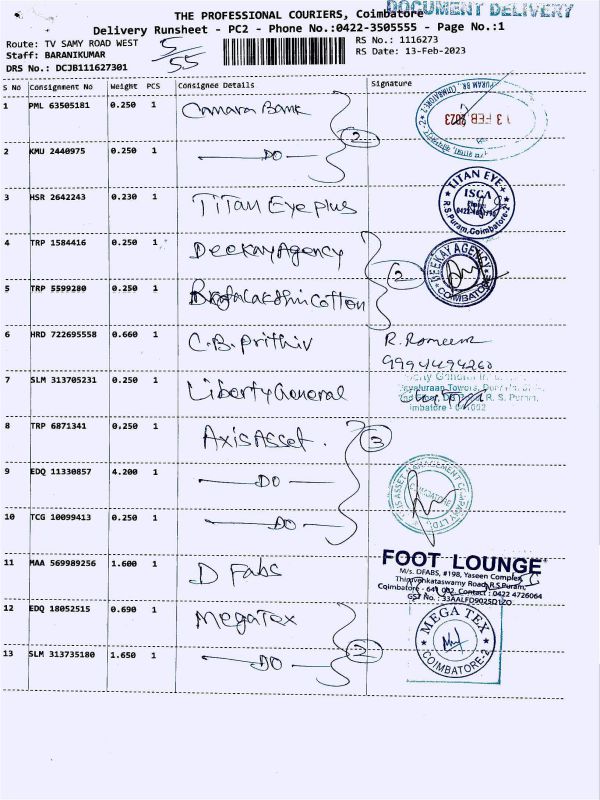 DOCUMENT DELIVERY
THE PROFESSIONAL COURIERS, Coimbatore
Delivery Runsheet - PC2 - Phone No.:0422-3505555 - Page No.:1
Route: TV SAMY ROAD WEST
Staff: BARANIKUMAR
DRS No.: DCJB111627301
5/55
RS No.: 1116273
RS Date: 13-Feb-2023
S No Consignment No Weight PCS Consignee Details Signature
1 PML 63505181 0.250 1 Canara Bank
13 FEB 2023
2 KMU 2440975 0.250 1 DO
2
3 HSR 2642243 0.230 1 Titan Eye plus
TITAN EYE+
ISGA
R.S Puram, Coimbatore-2
4 TRP 1584416 0.250 1 Deekay Agency
2
DEEKAY AGENCY
COIMBATORE
5 TRP 5599280 0.250 1 Cotton
6 HRD 722695558 0.660 1 C.B. Prithiv
R. Romeem
9994494260
7 SLM 313705231 0.250 1 Liberty General
R. S. Puram,
8 TRP 6871341 0.250 1 Axis Asset.
3
9 EDQ 11330857 4.200 1 DO
ASSET MANAGEMENT COMPANY LTD
COIMBATORE
10 TCG 10099413 0.250 1 DO
11 MAA 569989256 1.600 1 D Fabs
FOOT LOUNGE
M/s. DFABS, #198, Yaseen Complex,
Thiruvenkataswamy Road, R.S.Puram,
Coimbatore - 641 002. Contact : 0422 4726064
GST No. : 33AALFD9025D1ZO
12 EDQ 18052515 0.690 1 Mega Tex
MEGA TEX
COIMBATORE-2
13 SLM 313735180 1.650 1 DO
2